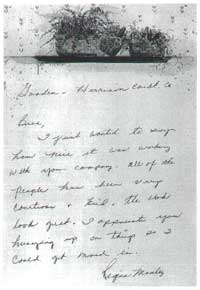 Gondea - Herrison Const. Co
Bruce,
I just wanted to say
how nice it was working
with your company. All of the
people has been very
courteous & kind. The work
look great. I appreciate you
hurrying up on things so I
could get moved in.
Regia